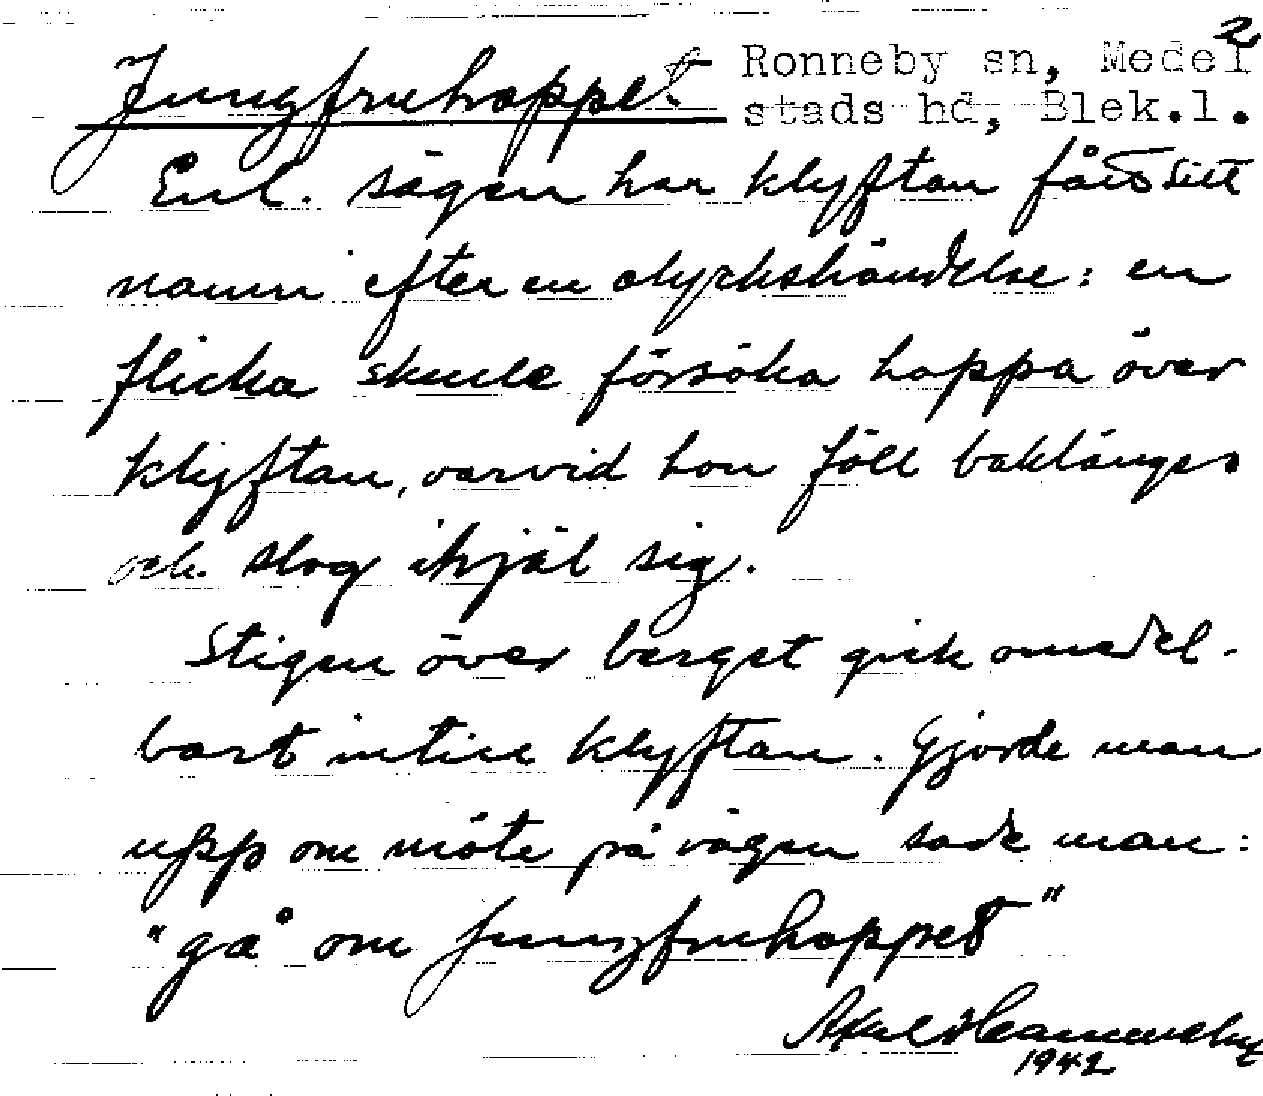 2
Jungfruhoppet. Ronneby sn, Medel
stads hd, Blek.l.
Enl. sägen har klyftan fått sitt
namn efter en olyckshändelse: en
flicka skulle försöka hoppa över
klyftan, varvid hon föll baklänges
och slog ihjäl sig.
Stigen över berget gick omedel-
bart intill klyftan. Gjorde man
upp om möte på vägen sade man:
"gå om Jungfruhoppet"
Axel
1942